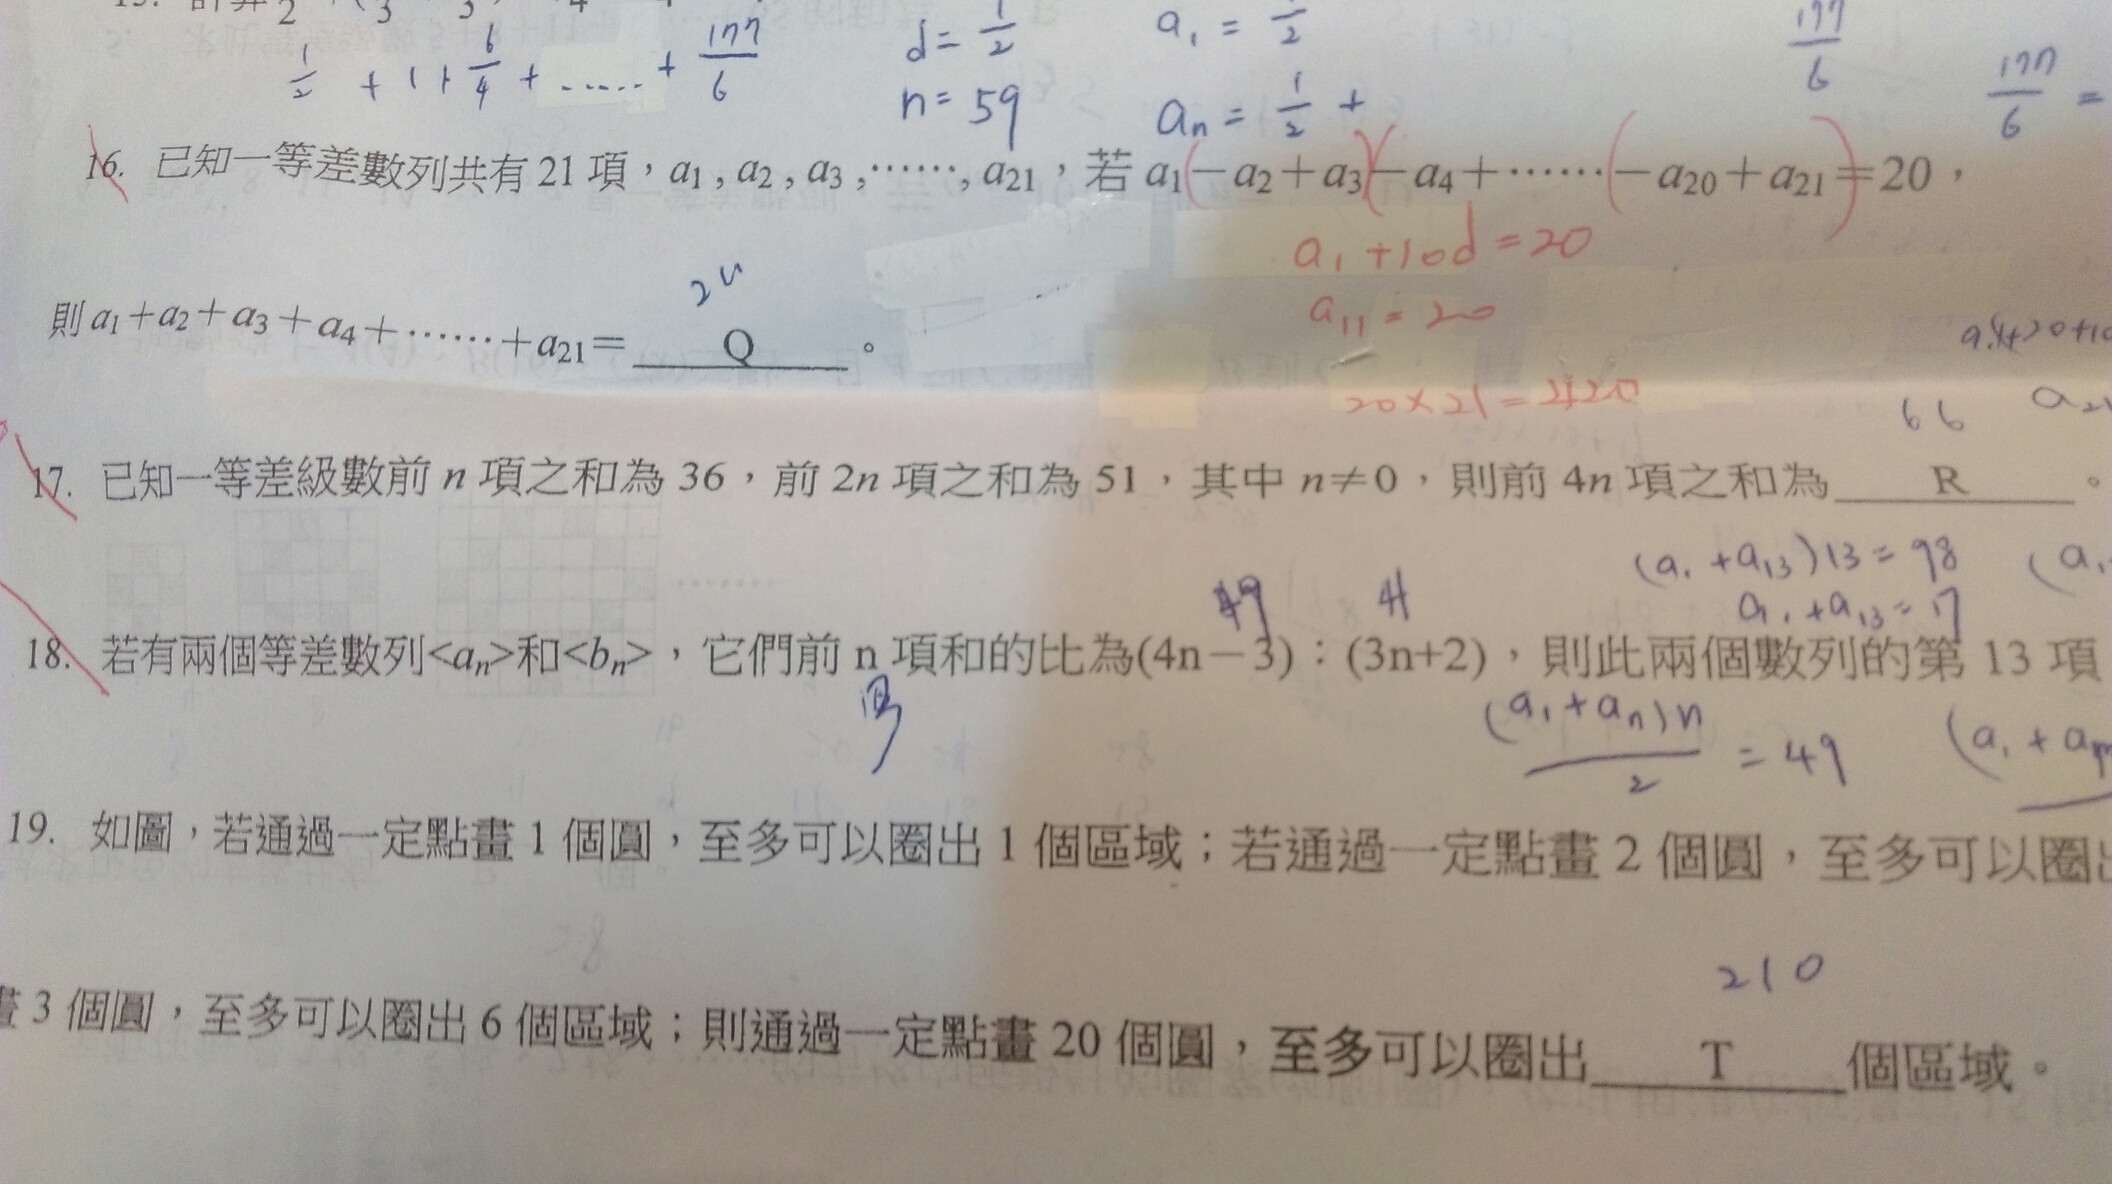 ½ + 1 + 6/4 + ...... + 177/6
d = ½
n = 59
a₁ = ½
aₙ = ½ +
177/6
177/6 =
16. 已知一等差數列共有 21 項，a₁ , a₂ , a₃ ,……, a₂₁，若 a₁(－a₂＋a₃)(－a₄＋……(－a₂₀＋a₂₁)＝20，
a₁ + 10d = 20
a₁₁ = 20
20 × 21 = 420
則 a₁＋a₂＋a₃＋a₄＋……＋a₂₁＝ Q 。
66
17. 已知一等差級數前 n 項之和為 36，前 2n 項之和為 51，其中 n≠0，則前 4n 項之和為 R 。
(a₁ + a₁₃)13 = 98
a₁ + a₁₃ = 17
49
41
18. 若有兩個等差數列<aₙ>和<bₙ>，它們前 n 項和的比為(4n－3)：(3n+2)，則此兩個數列的第 13 項
13
(a₁ + aₙ)n/2 = 49
19. 如圖，若通過一定點畫 1 個圓，至多可以圈出 1 個區域；若通過一定點畫 2 個圓，至多可以圈出
210
畫 3 個圓，至多可以圈出 6 個區域；則通過一定點畫 20 個圓，至多可以圈出 T 個區域。